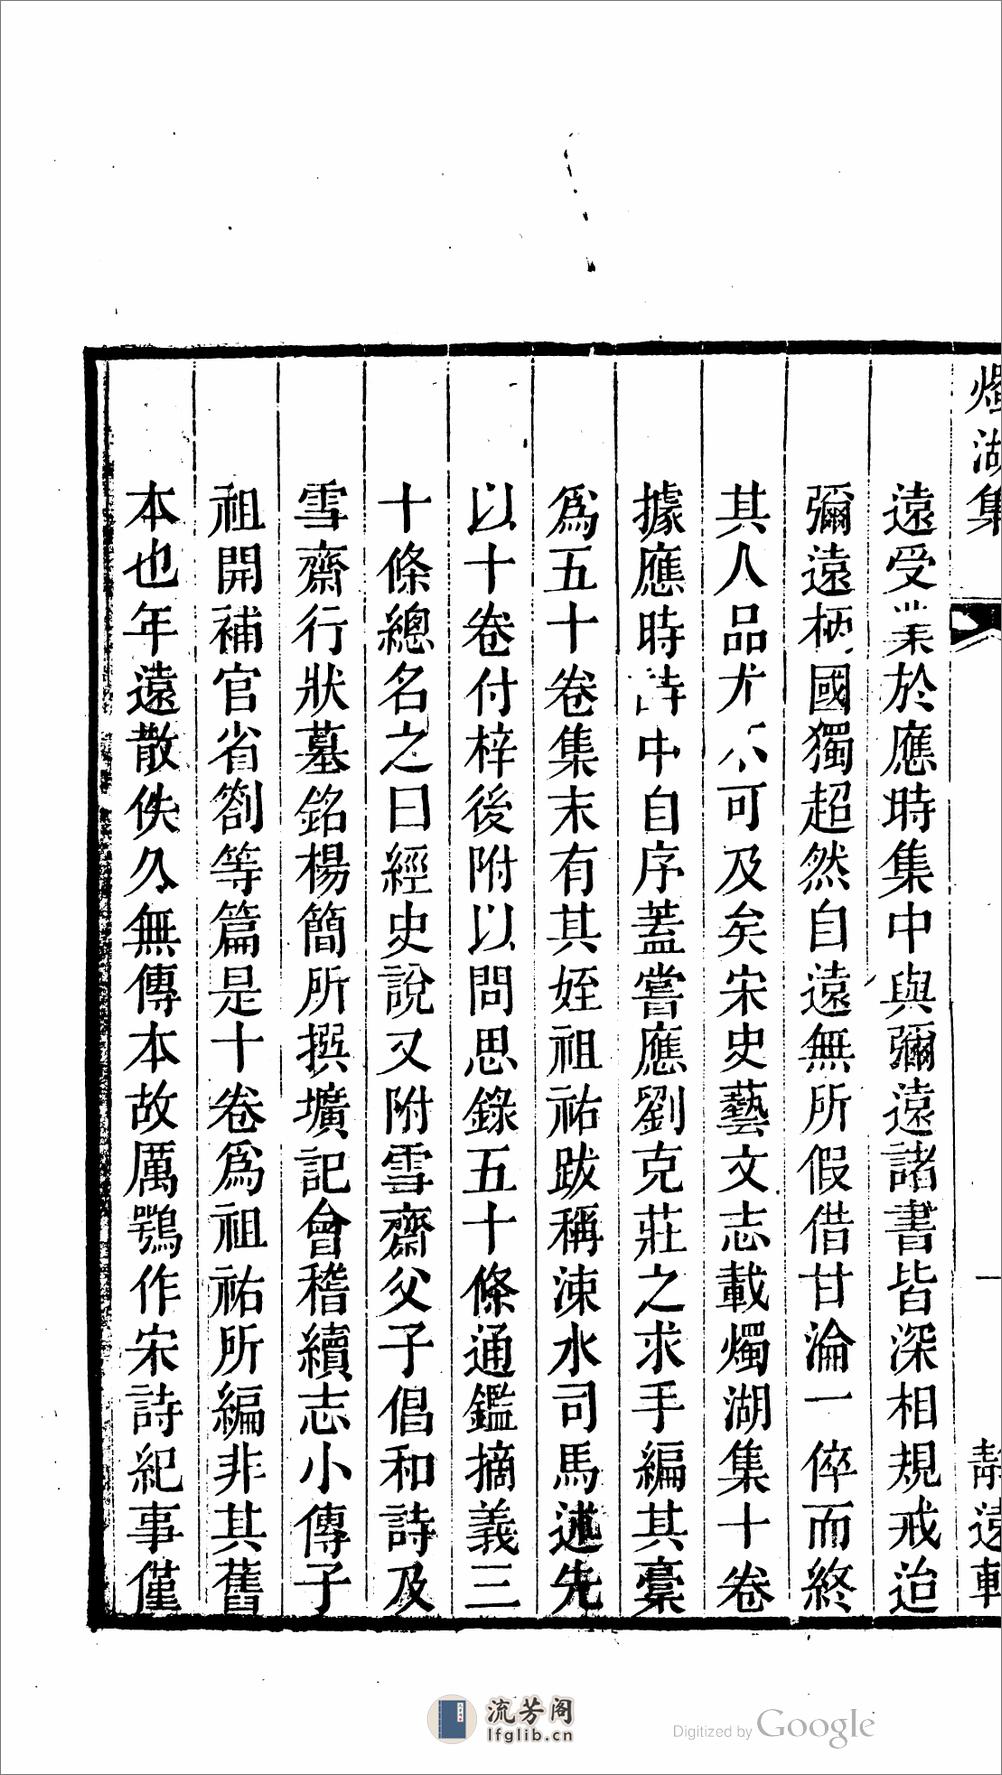 燭湖集
一
靜遠軒
遠受業於應時集中與彌遠諸書皆深相規戒迨
彌遠柄國獨超然自遠無所假借甘淪一倅而終
其人品尤不可及矣宋史藝文志載燭湖集十卷
據應時詩中自序蓋嘗應劉克莊之求手編其稾
爲五十卷集末有其姪祖祐跋稱涑水司馬述先
以十卷付梓後附以問思錄五十條通鑑摘義三
十條總名之曰經史說又附雪齋父子倡和詩及
雪齋行狀墓銘楊簡所撰壙記會稽續志小傳子
祖開補官省劄等篇是十卷爲祖祐所編非其舊
本也年遠散佚久無傳本故厲鶚作宋詩紀事僅
流芳阁
lfglib.cn
Digitized by Google